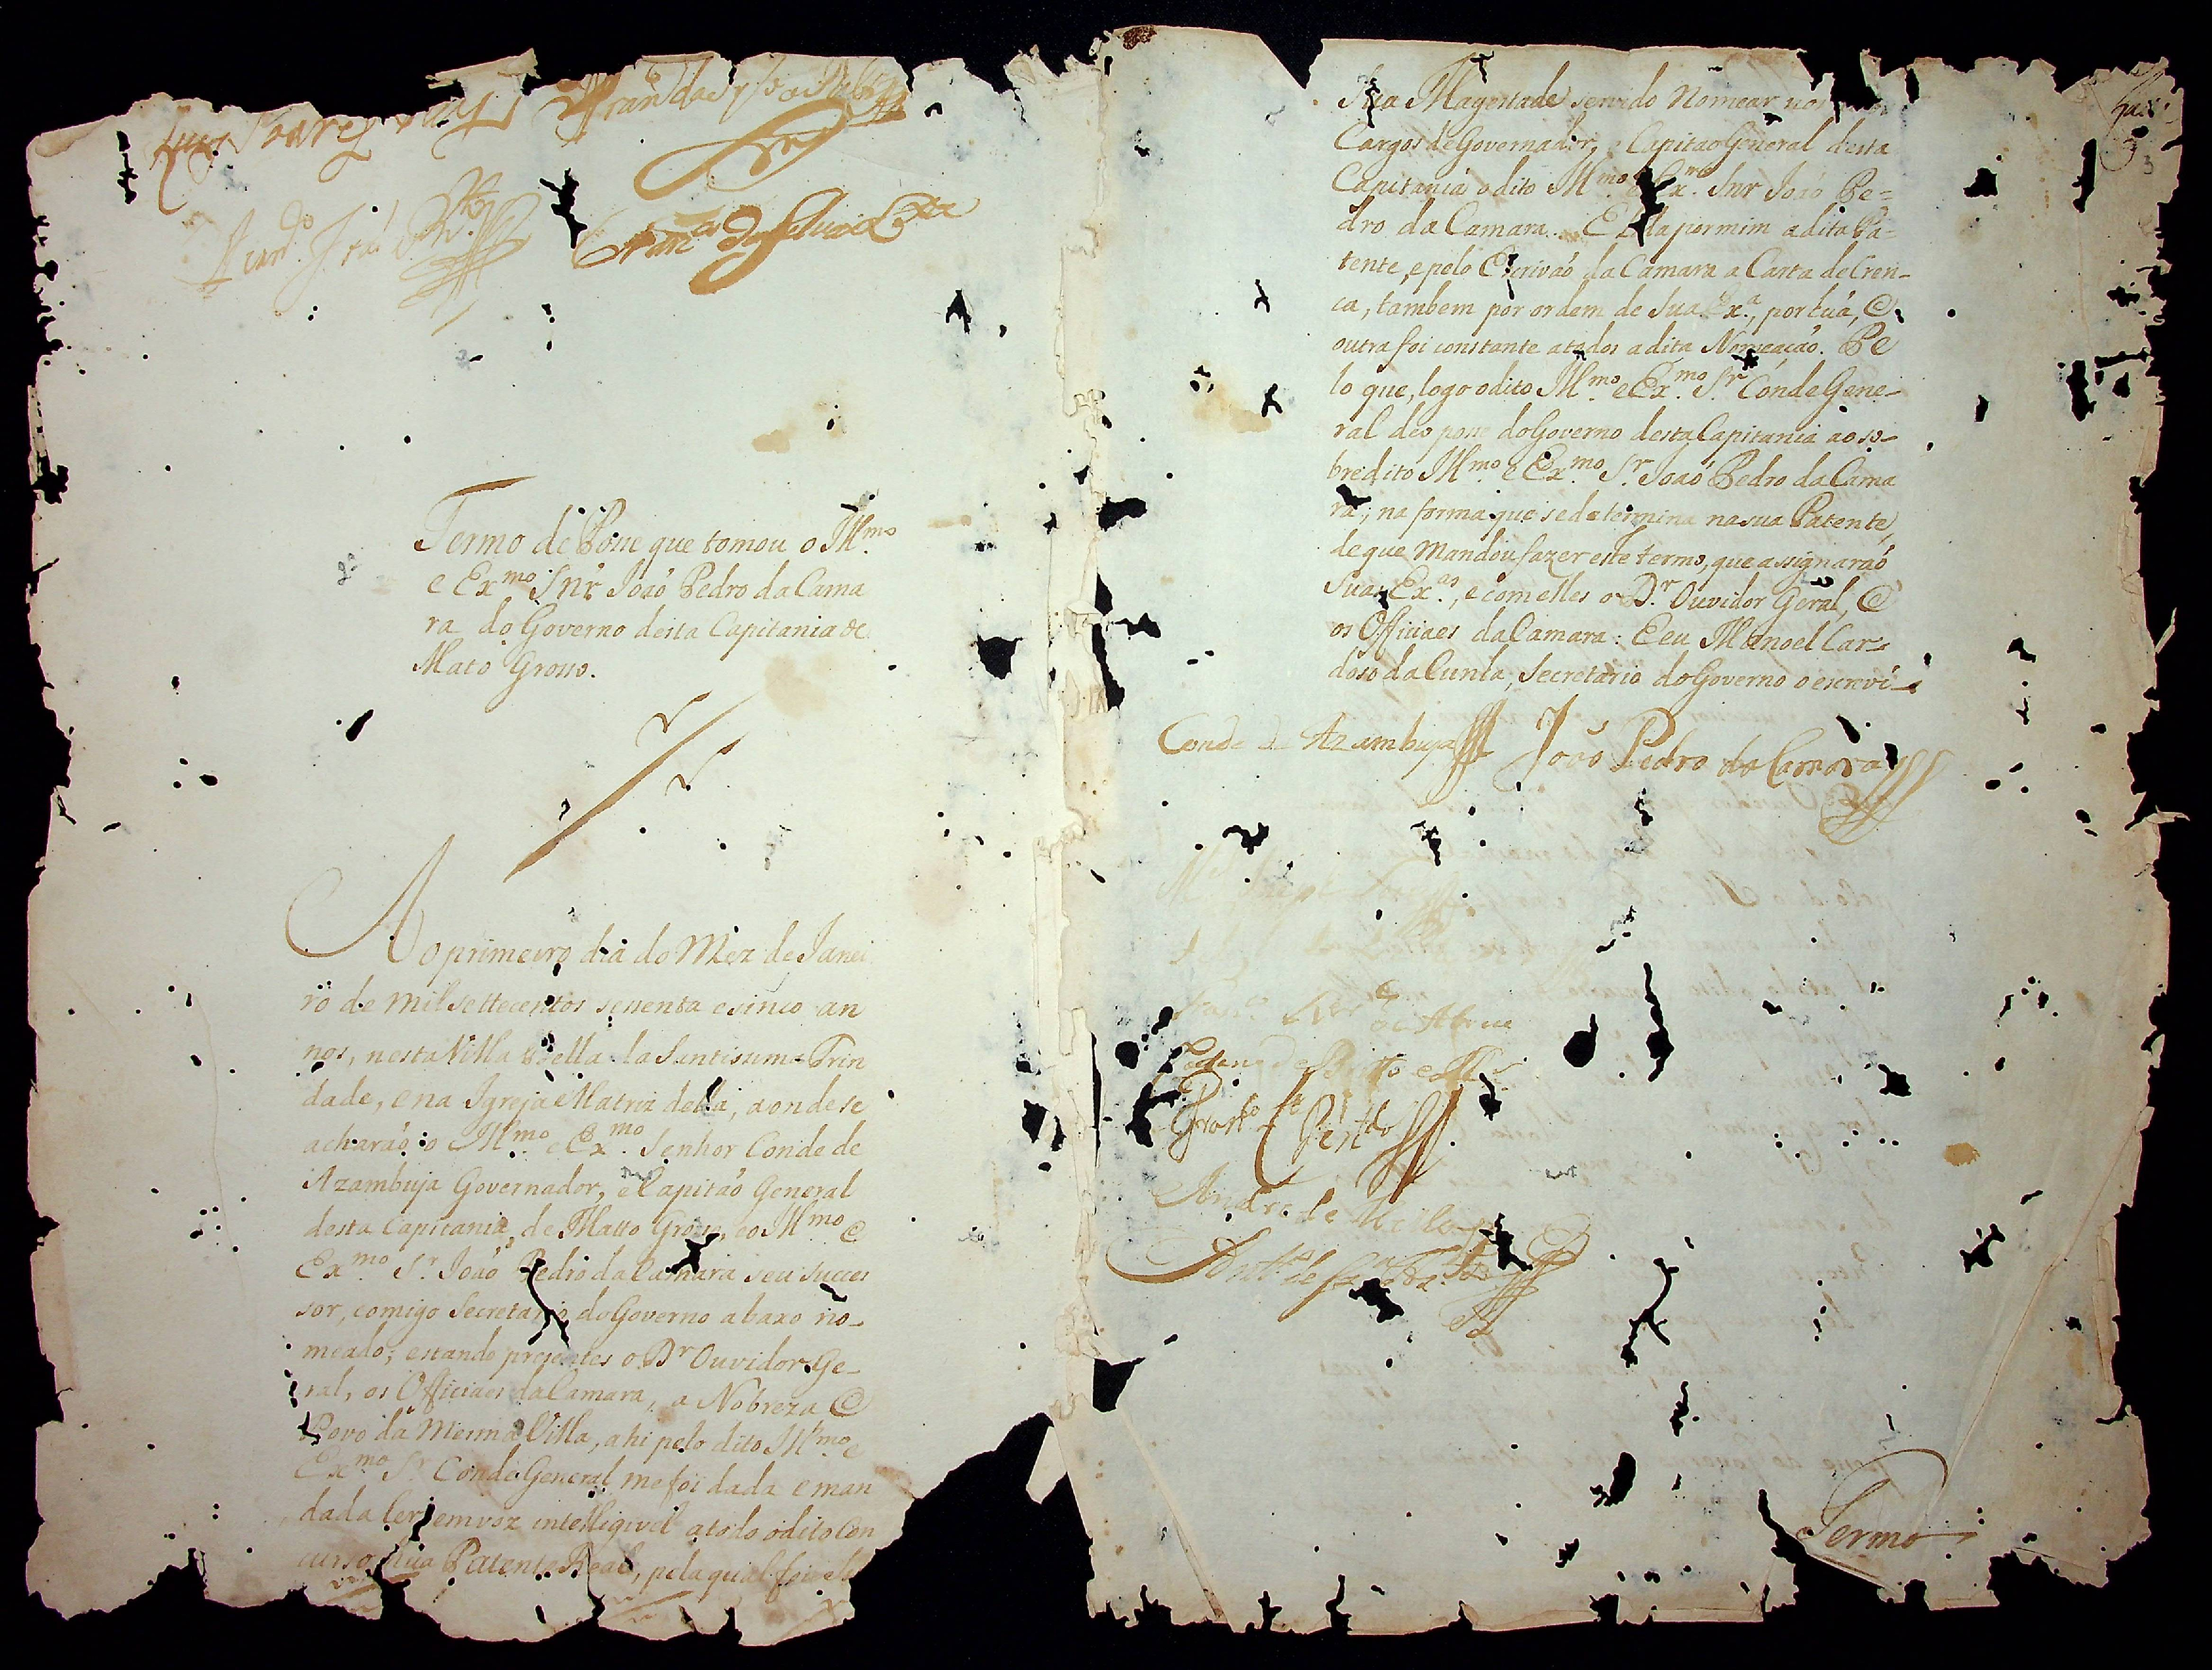 Luis Soares
Termo de Posse que tomou o Illmo.
e Exmo. Snr João Pedro da Cama
ra do Governo desta Capitania de
Mato Grosso.
Ao primeiro dia do Mez de Janei
ro de mil settecentos sessenta e sinco an
nos, nesta Villa Bella da Santissima Trin
dade, e na Igreja Matriz della, aonde se
acharão o Illmo. e Exmo. Senhor Conde de
Azambuja Governador, e Capitão General
desta Capitania de Matto Grosso, e o Illmo. e
Exmo. Sr. João Pedro da Camara seu succes
sor, comigo Secretario do Governo abaxo no-
meado; estando presentes o Dr. Ouvidor Ge-
ral, os Officiaes da Camara, a Nobreza e
Povo da Mesma Villa, ahi pelo dito Illmo. e
Exmo. Sr. Conde General me foi dada e man
dada ler em voz intelligivel a todo o dito Con
curso sua Patente Real, pela qual foi
Sua Magestade servido Nomear nos
Cargos de Governador, e Capitão General desta
Capitania o dito Illmo. e Exmo. Snr João Pe=
dro da Camara. E lida por mim a dita Pa-
tente, e pelo Escrivão da Camara a Carta de Cren-
ça, tambem por ordem de Sua Exa., por huã, e
outra foi constante a todos a dita Nomeação. Pe
lo que, logo o dito Illmo. e Exmo. Sr. Conde Gene-
ral deo posse do Governo desta Capitania ao so-
bredito Illmo. e Exmo. Sr. João Pedro da Cama
ra, na forma que se determina na sua Patente,
de que Mandou fazer este termo, que assignarão
Suas Exas., e com elles o Dr. Ouvidor Geral, e
os Officiaes da Camara: E eu Manoel Car-
doso da Cunha, Secretario do Governo o escrevi
Conde de Azambuja João Pedro da Camara
de Abreu
Termo